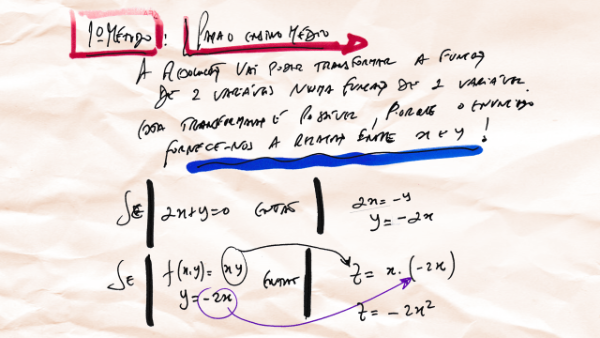 1º MÉTODO: PARA O ENSINO MÉDIO
A RESOLUÇÃO VAI PODER TRANSFORMAR A FUNÇÃO
DE 2 VARIÁVEIS NUMA FUNÇÃO DE 1 VARIÁVEL.
ESTA TRANSFORMAÇÃO É POSSÍVEL, PORQUE O ENUNCIADO
FORNECE-NOS A RELAÇÃO ENTRE x E y!
SE 2x+y=0 ENTÃO 2x = -y
y = -2x
SE f(x,y) = xy ENTÃO z = x.(-2x)
y = -2x
z = -2x²